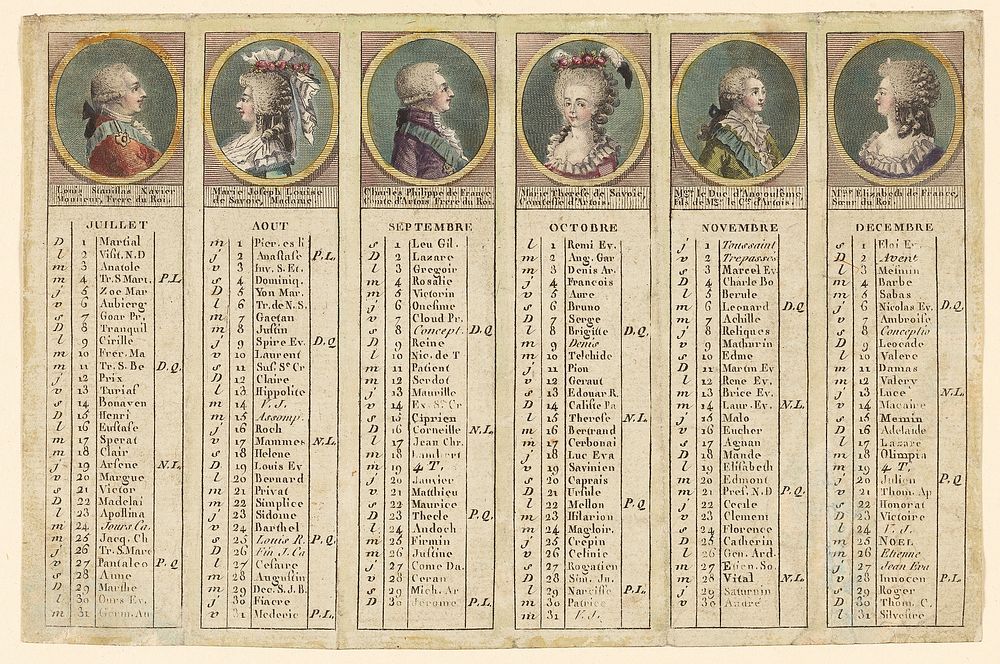 Louis Stanislas Xavier
Monsieur, Frere du Roi.
JUILLET
D 1 Martial
l 2 Visit. N.D
m 3 Anatole
m 4 Tr. S Mart. P.L.
j 5 Zoe Mar
v 6 Aubierg
s 7 Goar Pr.
D 8 Tranquil
l 9 Cirille
m 10 Frer. Ma
m 11 Tr. S. Be D.Q.
j 12 Prix
v 13 Turiaf
s 14 Bonaven
D 15 Henri
l 16 Eustase
m 17 Sperat
m 18 Clair
j 19 Arsene N.L.
v 20 Margue
s 21 Victor
D 22 Madelai
l 23 Apollina
m 24 Jours Ca.
m 25 Jacq. Ch
j 26 Tr. S. Marc
v 27 Pantaleo P.Q
s 28 Anne
D 29 Marthe
l 30 Ours Ev.
m 31 Germ. Au
Marie Joseph Louise
de Savoie, Madame
AOUT
m 1 Pier. es li
j 2 Anastase P.L.
v 3 Inv. S. Et.
s 4 Dominiq.
D 5 Yon Mar.
l 6 Tr. de N.S.
m 7 Gaetan
m 8 Justin
j 9 Spire Ev. D.Q
v 10 Laurent
s 11 Sus. Se Cr
D 12 Claire
l 13 Hippolite
m 14 V. J.
m 15 Assomp.
j 16 Roch
v 17 Mammes N.L.
s 18 Helene
D 19 Louis Ev
l 20 Bernard
m 21 Privat
m 22 Simplice
j 23 Sidoine
v 24 Barthel
s 25 Louis R. P.Q.
D 26 Fin J. Ca
l 27 Cesaire
m 28 Augustin
m 29 Dec. S. J. B.
j 30 Fiacre
v 31 Mederic P.L.
Charles Philippe de France
Comte d'Artois Frere du Roi.
SEPTEMBRE
s 1 Leu Gil.
D 2 Lazare
l 3 Gregoir
m 4 Rosalie
m 5 Victorin
j 6 Onesime
v 7 Cloud Pr.
s 8 Concept. D.Q
D 9 Reine
l 10 Nic. de T
m 11 Patient
m 12 Serdot
j 13 Maurille
v 14 Ex. Se Cr
s 15 Ciprien
D 16 Corneille N.L.
l 17 Jean Chr.
m 18 Lambert
m 19 4 T.
j 20 Janvier
v 21 Matthieu
s 22 Maurice
D 23 Thecle P.Q.
l 24 Andoch
m 25 Firmin
m 26 Justine
j 27 Come Da.
v 28 Ceran
s 29 Mich. Ar
D 30 Jerome P.L.
Marie Therese de Savoie,
Comtesse d'Artois.
OCTOBRE
l 1 Remi Ev.
m 2 Ang. Gar
m 3 Denis Ar.
j 4 Francois
v 5 Aure
s 6 Bruno
D 7 Serge
l 8 Brigitte D.Q.
m 9 Denis
m 10 Telchide
j 11 Pion
v 12 Geraut
s 13 Edouar R.
D 14 Caliste Pa
l 15 Therese N.L.
m 16 Bertrand
m 17 Cerbonai
j 18 Luc Eva
v 19 Savinien
s 20 Caprais
D 21 Ursule
l 22 Mellon P.Q
m 23 Hilarion
m 24 Magloir.
j 25 Crepin
v 26 Celinie
s 27 Rogatien
D 28 Sim. Ju.
l 29 Narcisse P.L.
m 30 Patrice
m 31 V. J.
Mgr. le Duc d'Angouleme,
fils de Mgr. le Cte. d'Artois.
NOVEMBRE
j 1 Toussaint
v 2 Trepasses
s 3 Marcel Ev.
D 4 Charle Bo
l 5 Berule
m 6 Leonard D.Q
m 7 Achille
j 8 Reliques
v 9 Mathurin
s 10 Edme
D 11 Martin Ev
l 12 Rene Ev.
m 13 Brice Ev.
m 14 Laur. Ev. N.L.
j 15 Malo
v 16 Eucher
s 17 Agnan
D 18 Mande
l 19 Elisabeth
m 20 Edmont
m 21 Pres. N.D P.Q.
j 22 Cecile
v 23 Clement
s 24 Florence
D 25 Catherin
l 26 Gen. Ard.
m 27 Etien. So.
m 28 Vital N.L.
j 29 Saturnin
v 30 André
Mme. Elizabeth de France,
Sœur du Roi.
DECEMBRE
s 1 Eloi Ev.
D 2 Avent
l 3 Mesmin
m 4 Barbe
m 5 Sabas
j 6 Nicolas Ev. D.Q.
v 7 Ambroise
s 8 Conceptio
D 9 Leocade
l 10 Valere
m 11 Damas
m 12 Valery
j 13 Luce N.L.
v 14 Macaire
s 15 Memin
D 16 Adelaide
l 17 Lazare
m 18 Olimpia
m 19 4 T.
j 20 Julien P.Q
v 21 Thom. Ap
s 22 Honorat
D 23 Victoire
l 24 V. J.
m 25 NOEL
m 26 Etienne
j 27 Jean Eva
v 28 Innocen P.L.
s 29 Roger
D 30 Thom. C.
l 31 Silvestre